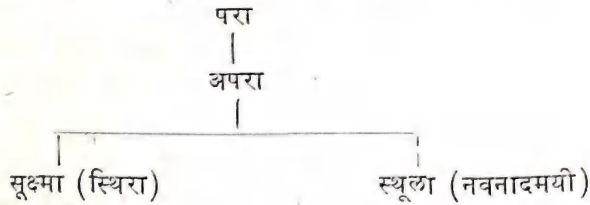 परा
अपरा
सूक्ष्मा (स्थिरा) स्थूला (नवनादमयी)